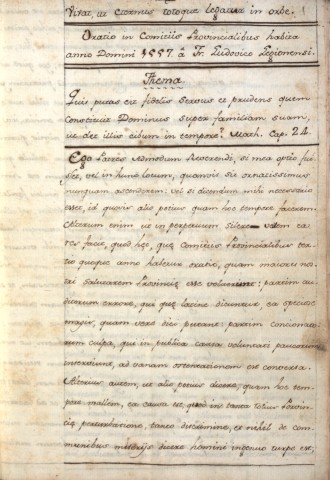 Vivat, ut æternus totoque legatur in orbe.
Oratio in Comitiis Provincialibus habita
anno Domini 1557. â Fr. Ludovico Legionensi.
Thema
Quis putas est fidelis Servus et prudens quem
constituit Dominus super familiam suam,
ut det illis cibum in tempore? Math. Cap. 24.
Ego Patres Admodum Reverendi, si mea optio fuis
set, vel in hunc locum, quamvis sit ornatissimus
nunquam ascenderem: vel si dicendum mihi necessario
esset, id quovis alio potius quam hoc tempore facerem
Alterum enim ut in perpetuum silere vellem ea
res facit, quod hęc, quę Comitiis Provincialibus ter
tio quoque anno habetur oratio, quam maiores nos
tri salutarem Provincię esse voluerunt: partim au
ditorum errore, qui quę latine dicuntur, ea speciose
magis, quam vere dici putant: partim concionato
rum culpa, qui in publica causa voluntati paucorum
inserviunt, ad vanam ostentationem est conversa.
Alterum autem, ut alio potius dicere, quam hoc tem
pore mallem, ea causa est, quod in tanta totius Provin
cię perturbatione, tanto discrimine, et nihil de com
munibus miserijs dicere homini ingenuo turpe est,